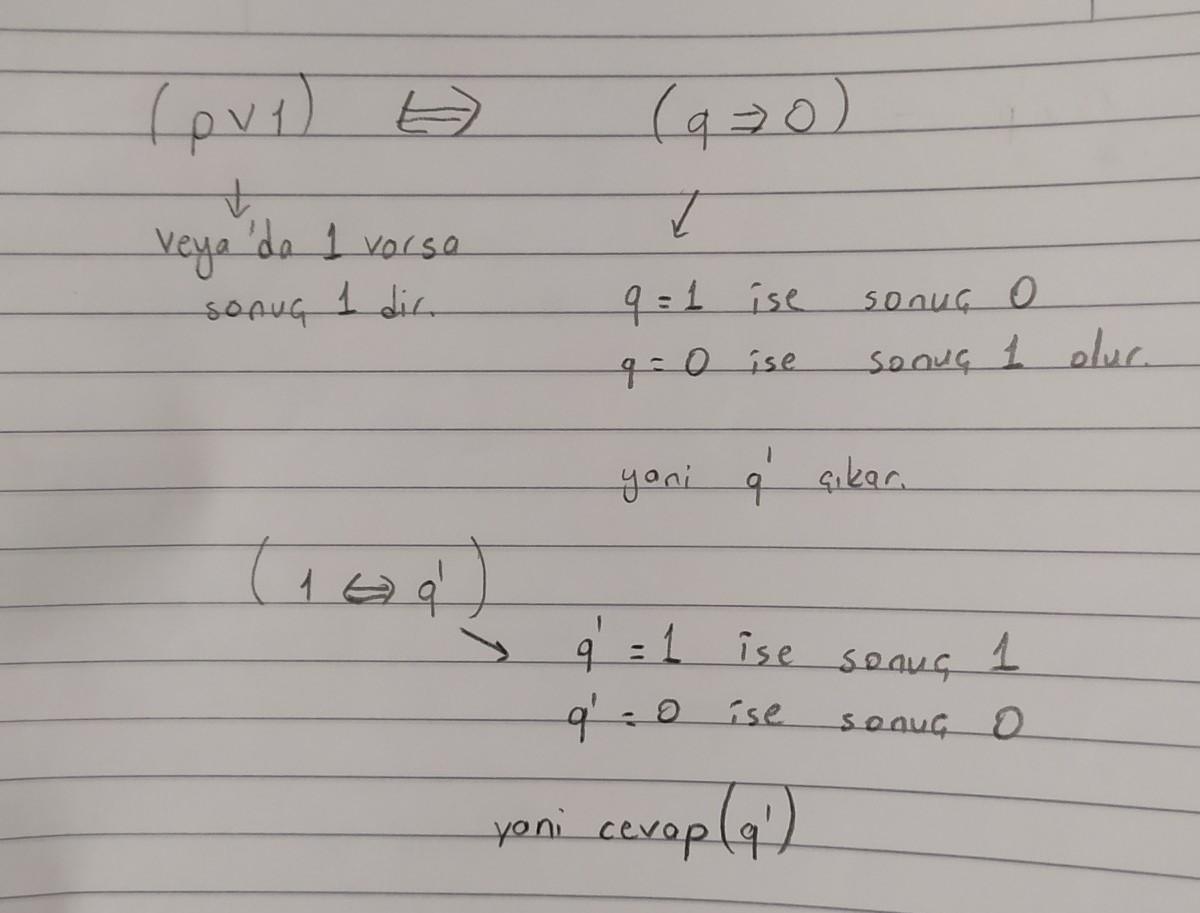 (p∨1) ⇔ (q⇒0)
↓ ↓
veya'da 1 varsa
sonuç 1 dir.
q=1 ise sonuç 0
q=0 ise sonuç 1 olur.
yani q' çıkar.
(1⇔q')
↘ q'=1 ise sonuç 1
q'=0 ise sonuç 0
yani cevap(q')